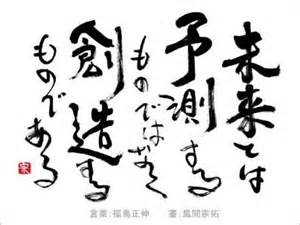 未来とは
予測する
ものではなく
創造する
ものである
言葉:福島正伸　書:風間宗拓